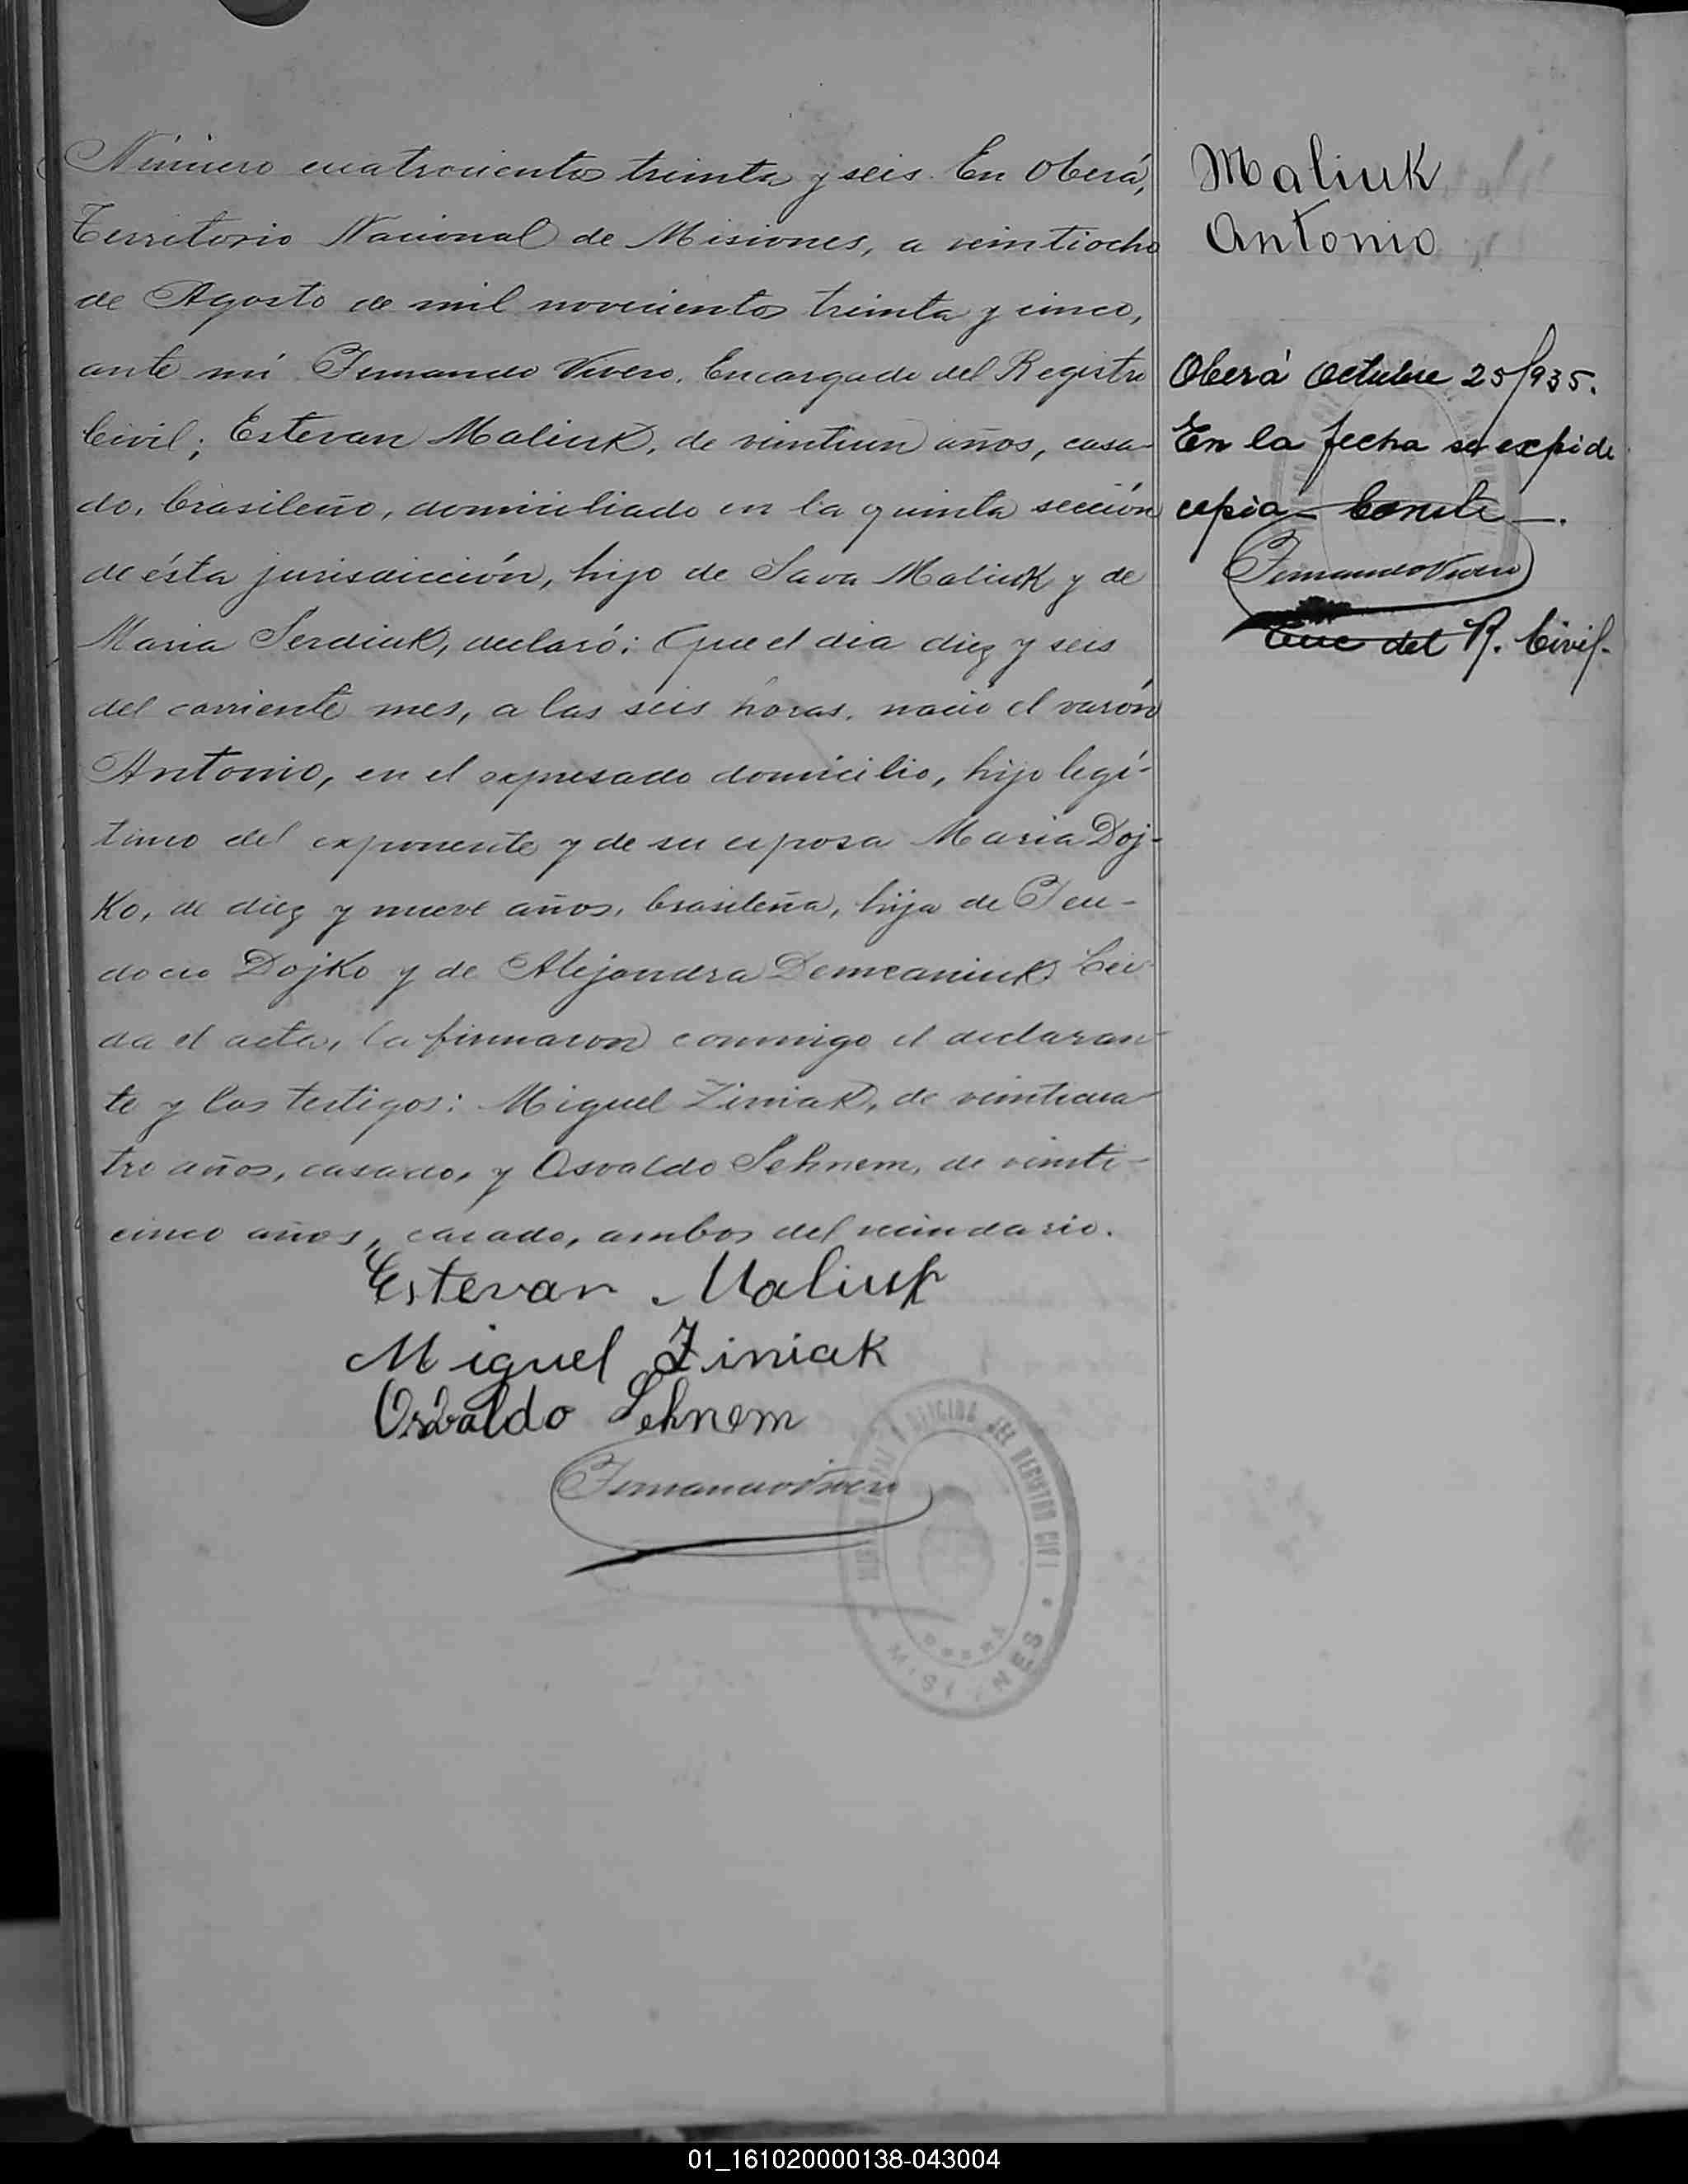 Número cuatrocientos treinta y seis. En Oberá,
Territorio Nacional de Misiones, a veintiocho
de Agosto de mil novecientos treinta y cinco,
ante mí Fernando Vivero, Encargado del Registro
Civil; Estevan Maliuk, de veintiun años, casa-
do, brasileño, domiciliado en la quinta sección
de ésta jurisdicción, hijo de Sava Maliuk y de
Maria Serdiuk, declaró: Que el dia diez y seis
del corriente mes, a las seis horas, nació el varón
Antonio, en el expresado domicilio, hijo legí-
timo del exponente y de su esposa Maria Doj-
ko, de diez y nueve años, brasileña, hija de Feu-
docio Dojko y de Alejandra Demeaniuk. Leí-
da el acta, la firmaron conmigo el declaran-
te y los testigos: Miguel Ziniak, de veinticua-
tro años, casado, y Osvaldo Sehnem, de veinti-
cinco años, casado, ambos del vecindario.
Estevan Maliuk
Miguel Ziniak
Osvaldo Sehnem
Fernando Vivero
OFICINA DEL REGISTRO CIVIL
OBERÁ
MISIONES
Maliuk
Antonio
Oberá Octubre 25/935.
En la fecha se expide
copia - Conste -.
Fernando Vivero
Enc del R. Civil.
01_161020000138-043004